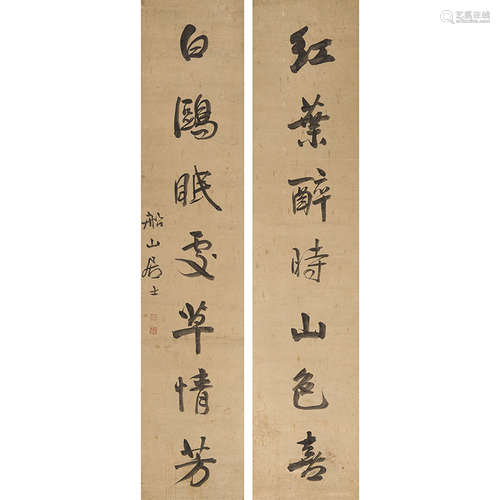 红葉醉時山色喜
白鷗眠處草情芳
船山居士